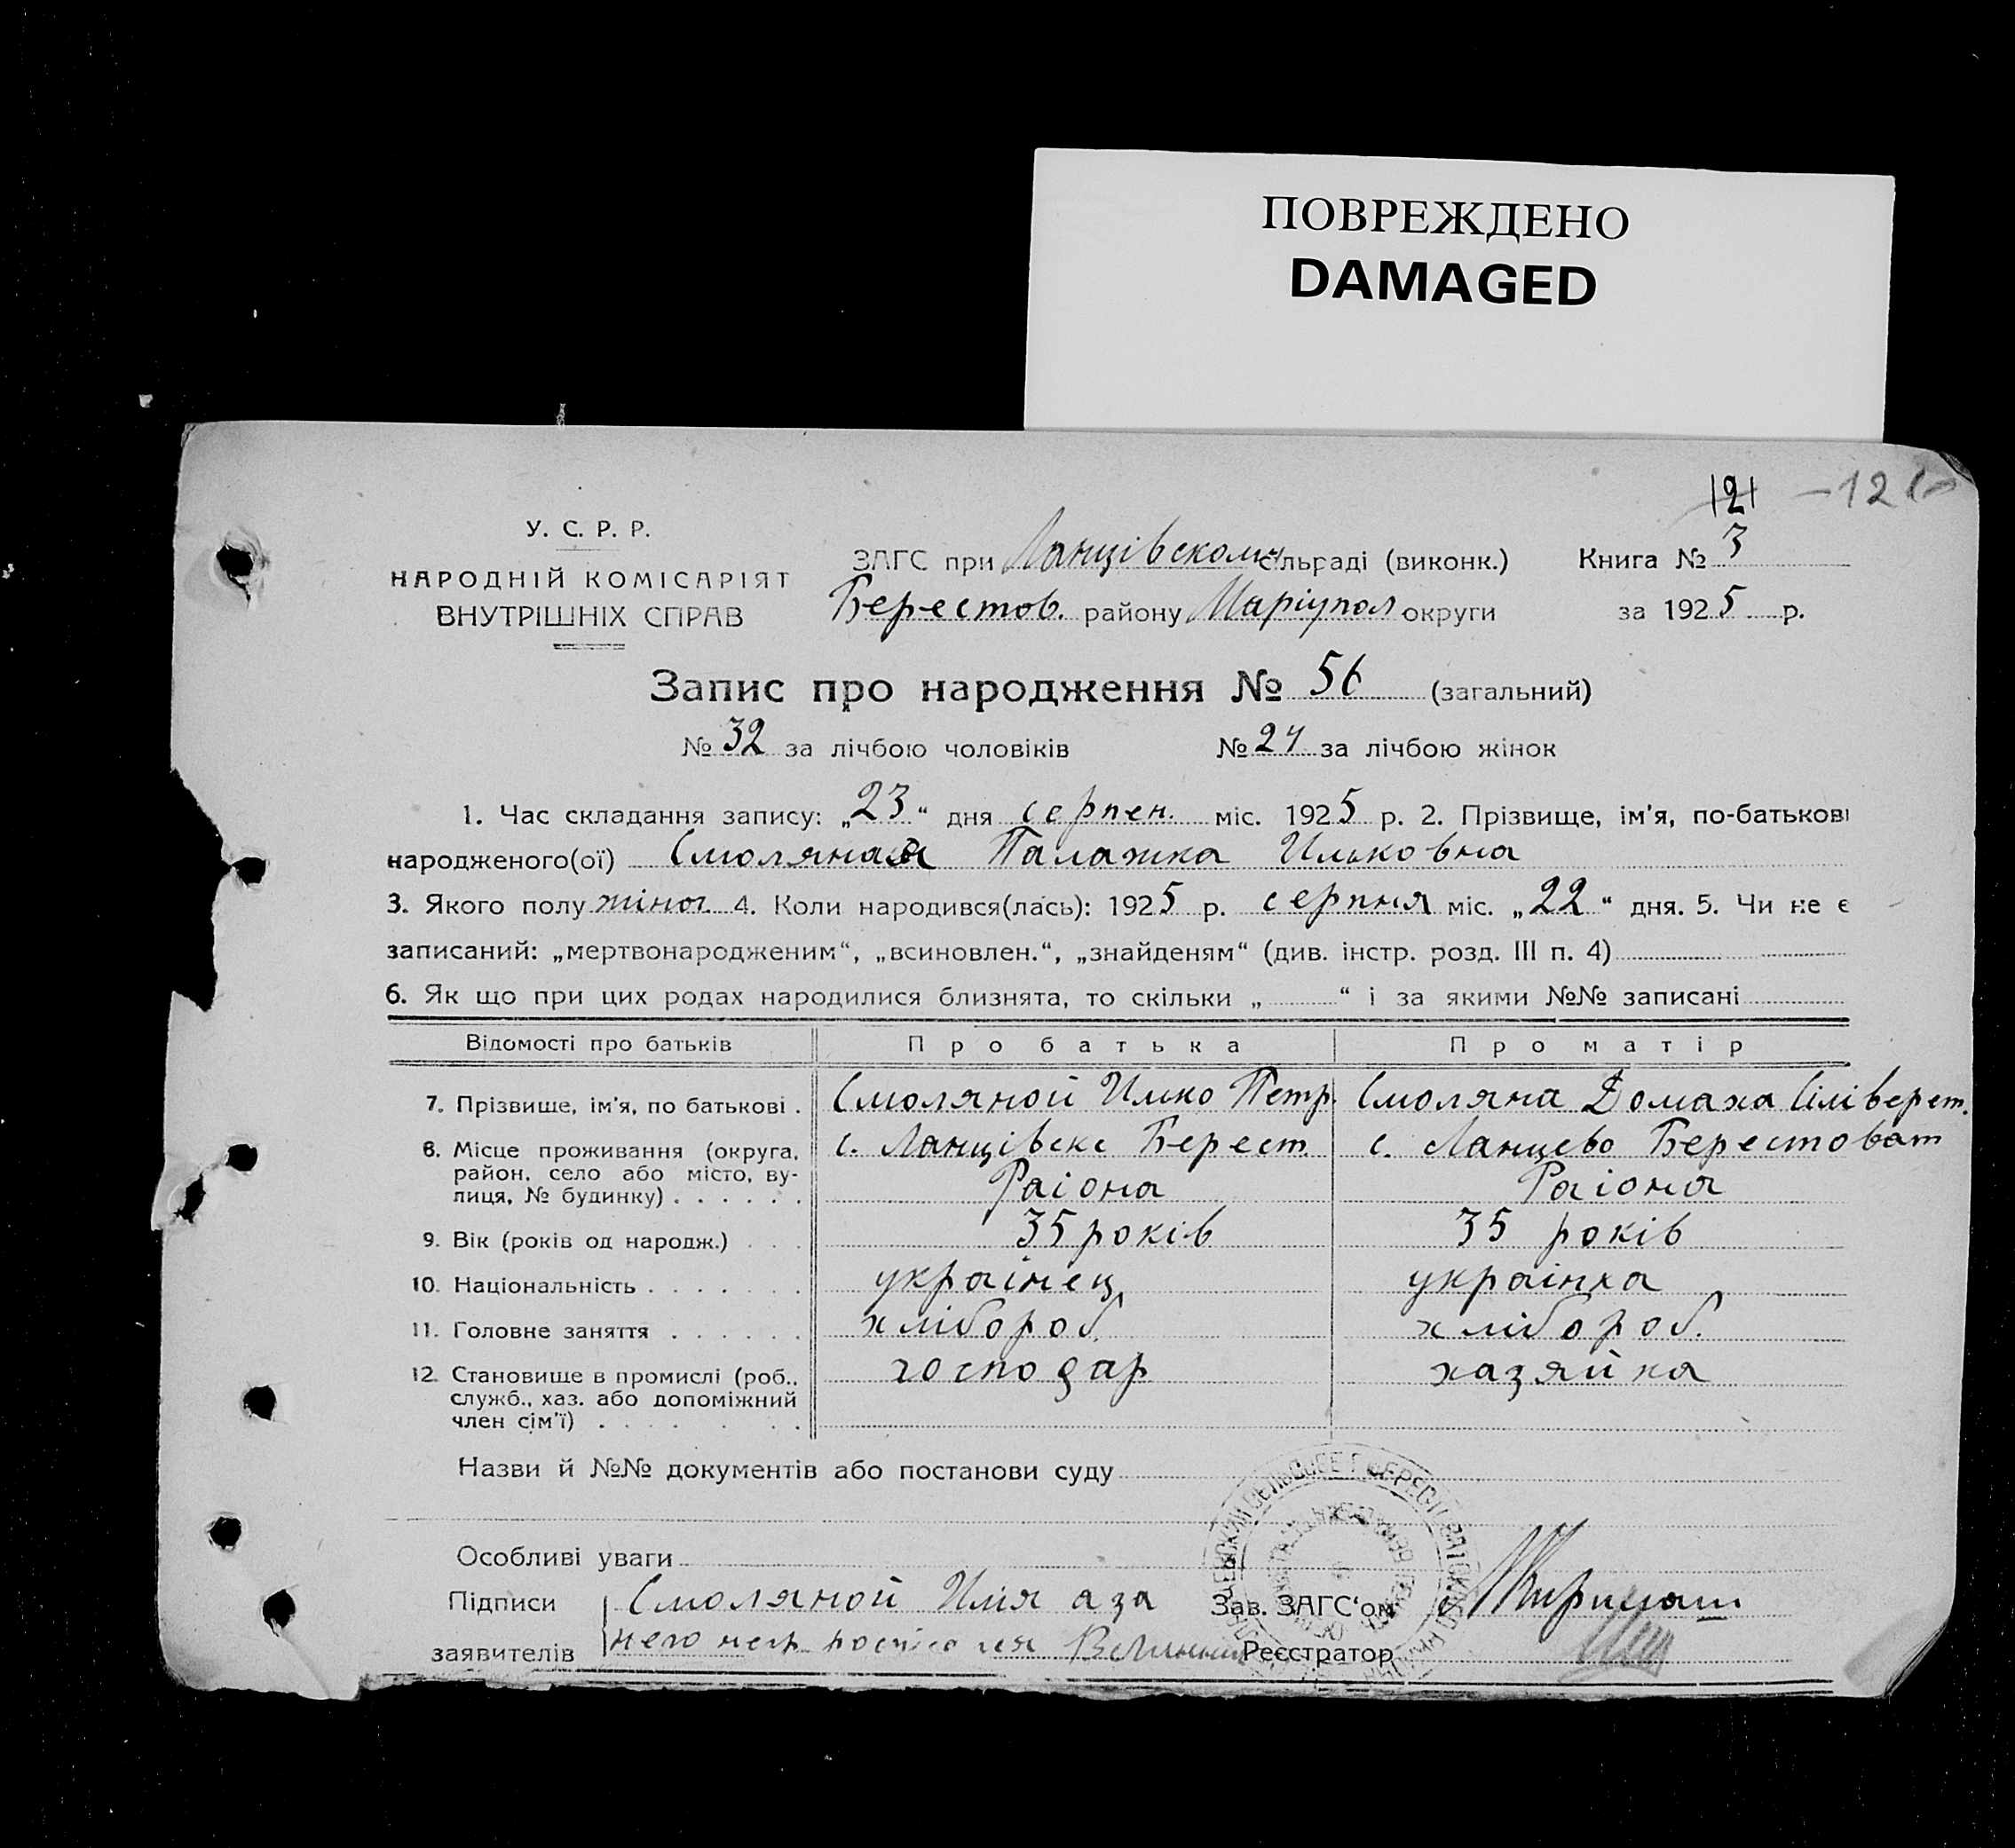 ПОВРЕЖДЕНО
DAMAGED
121 -12
У. С. Р. Р.
НАРОДНІЙ КОМІСАРІЯТ
ВНУТРІШНІХ СПРАВ
ЗАГС при Ланцівском сільраді (виконк.) Книга № 3
Берестов. району Маріупол округи за 1925 р.
Запис про народження № 56 (загальний)
№ 32 за лічбою чоловіків № 24 за лічбою жінок
1. Час складання запису: „23“ дня серпен. міс. 1925 р. 2. Прізвище, ім'я, по-батькові
народженого(ої) Смоляная Палажка Ильковна
3. Якого полу жіноч. 4. Коли народився(лась): 1925 р. серпня міс. „22“ дня. 5. Чи не є
записаний: „мертвонародженим“, „всиновлен.“, „знайденям“ (див. інстр. розд. III п. 4)
6. Як що при цих родах народилися близнята, то скільки „ “ і за якими №№ записані
Відомості про батьків Про батька Про матір
7. Прізвище, ім'я, по батькові . Смоляной Илько Петр. Смоляна Домаха Сіліверст.
8. Місце проживання (округа, район, село або місто, вулиця, № будинку) . . . . . . с. Ланцівскє Берест. Раіона с. Ланцево Берестоват Раіона
9. Вік (років од народж.) . . . 35 років 35 років
10. Національність . . . . . . . українец українка
11. Головне заняття . . . . . . хлібороб. хлібороб.
12. Становище в промислі (роб., служб., хаз. або допоміжний член сім'ї) . . . . . . . господар хазяйка
Назви й №№ документів або постанови суду
Особливі уваги
Підписи Смоляной Илія а за Зав. ЗАГС'ом
заявителів него негр. Реєстратор